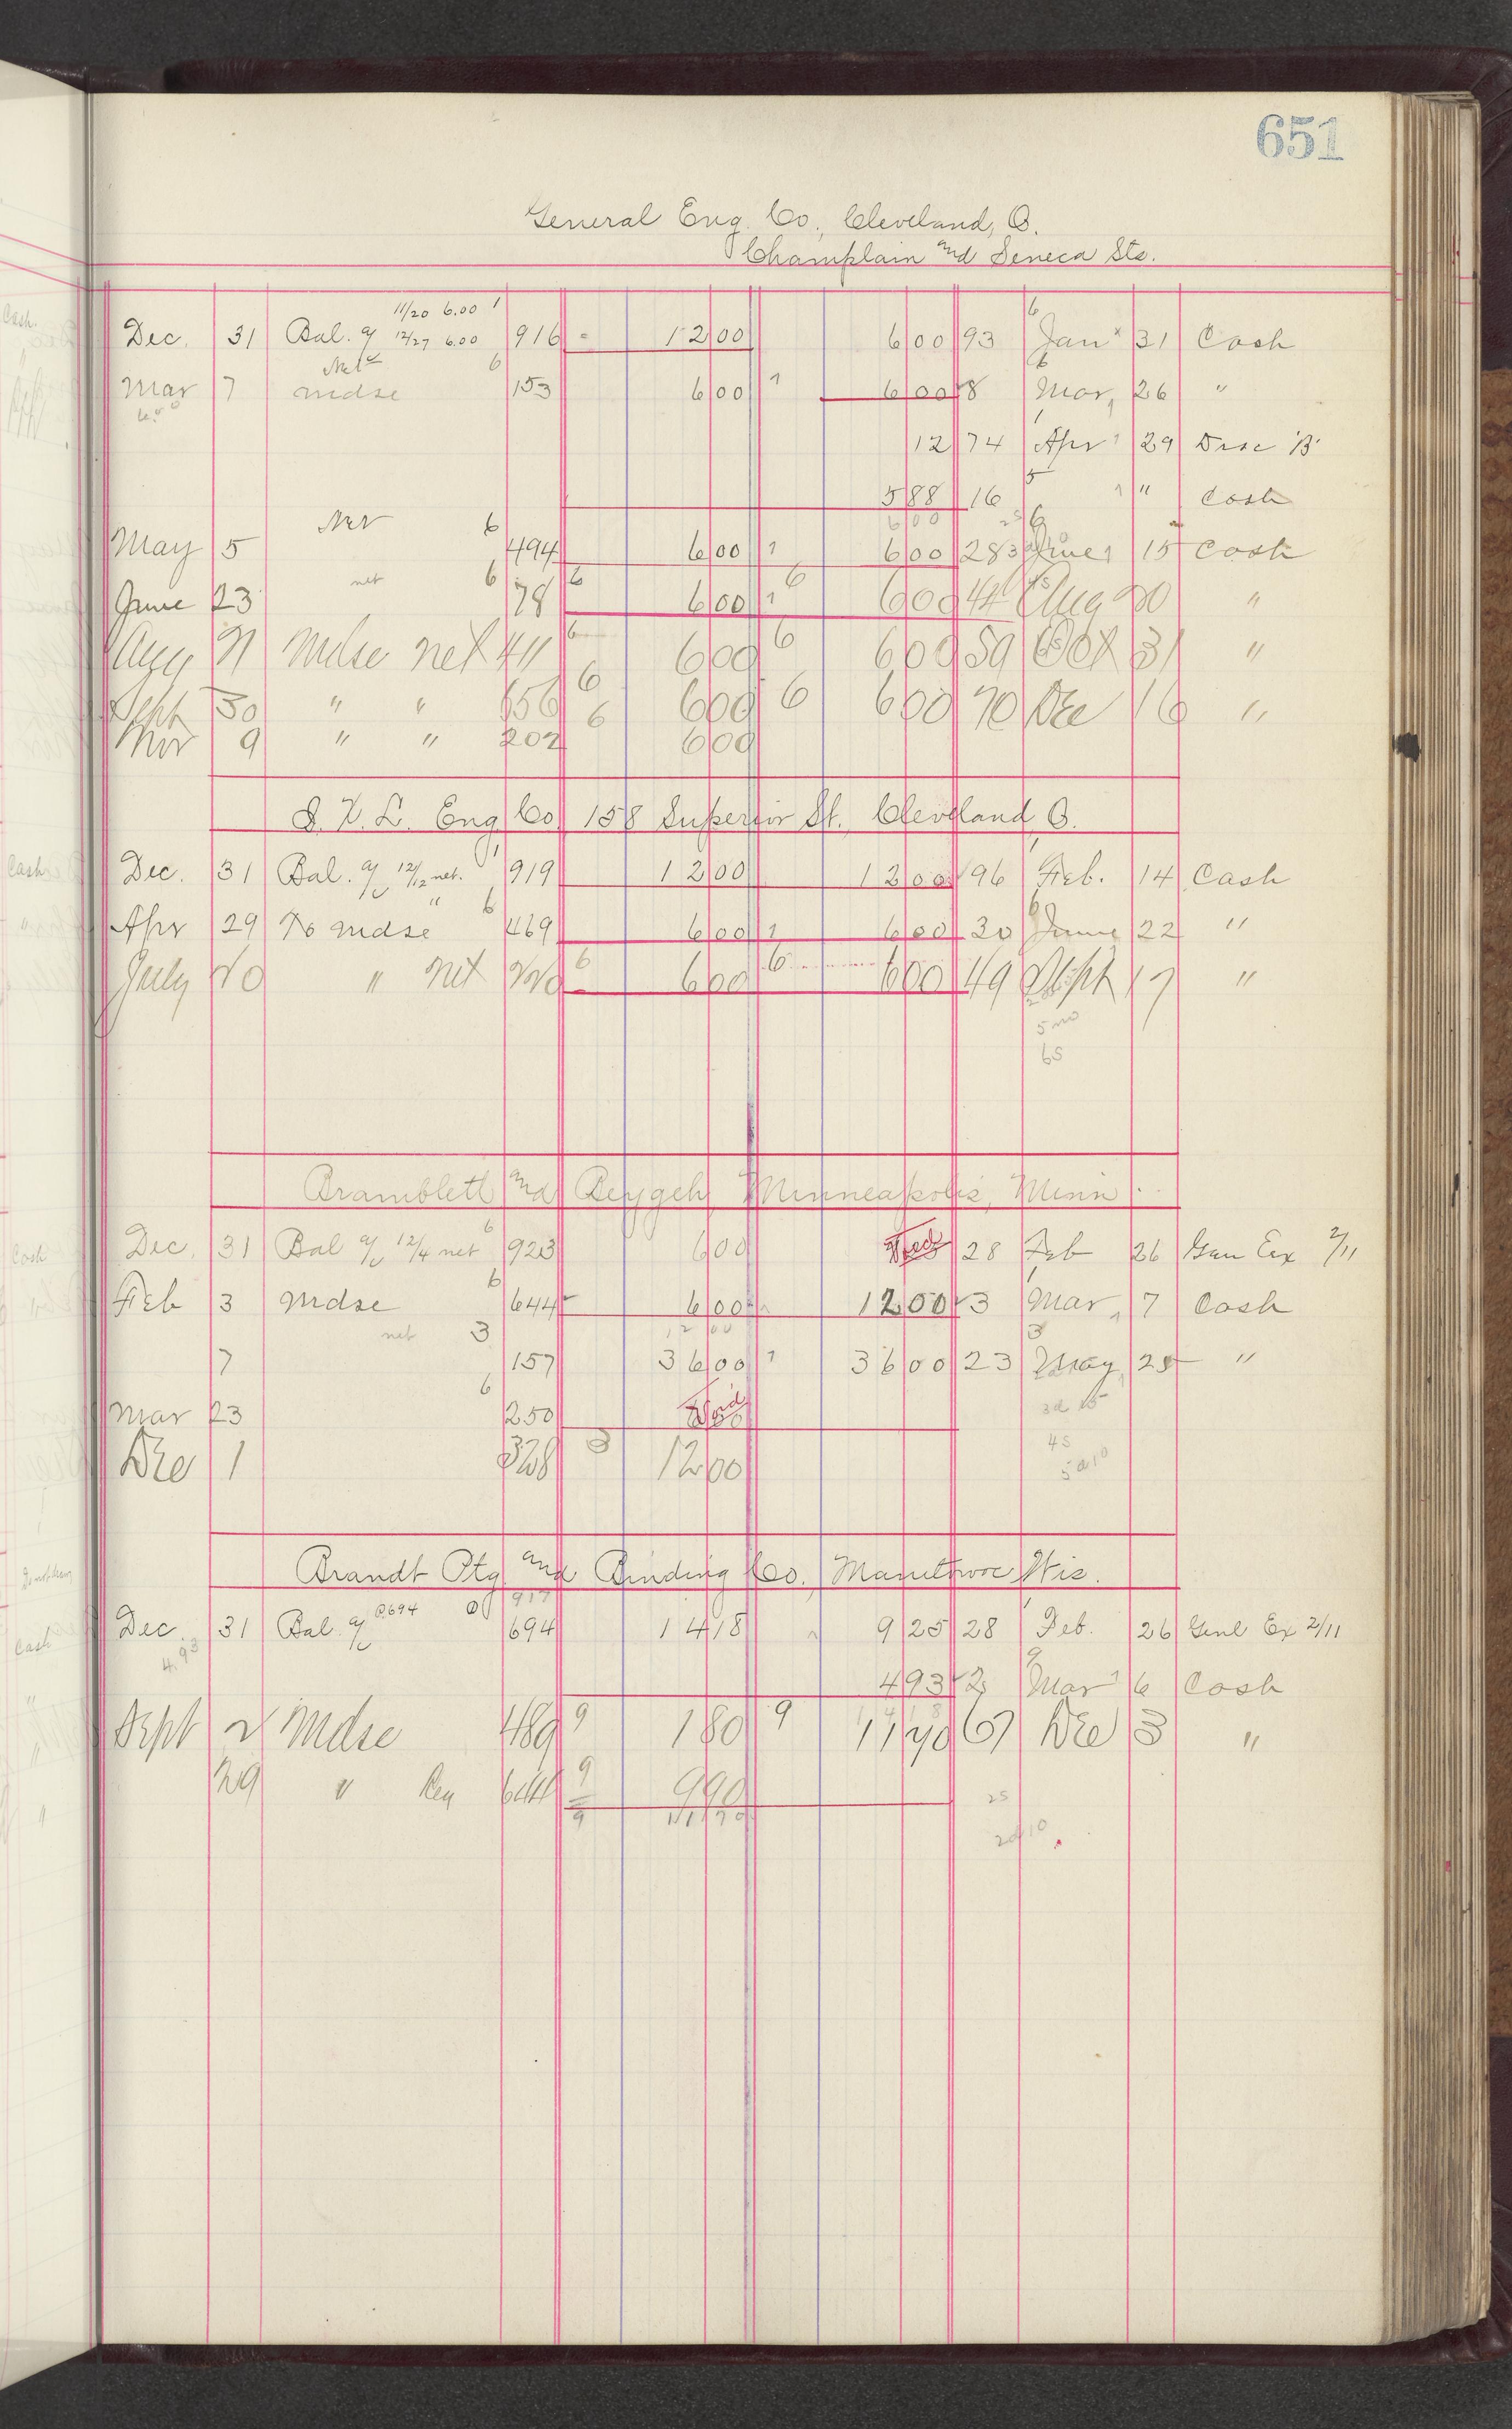 651
General Eng. Co., Cleveland, O.
Champlain and Seneca Sts.
11/20 6.00
Dec. 31 Bal. a/c 12/27 6.00 916 12 00 6 00 93 Jan 31 Cash
Net 6
Mar 7 mdse 153 6 00 6 00 8 Mar, 26 "
6.00
12 74 Apr 29 Disc 'B'
5 88 16 " Cash
Net 6 6 00
May 5 494 6 00 6 00 283 June 15 Cash
net 6
June 23 78 6 6 00 6 6 00 44 Aug 20 "
Aug 21 Mdse net 411 6 6 00 6 6 00 59 Oct 31 "
Sept 30 " " 656 6 6 00 6 6 00 70 Dec 16 "
Nov 9 " " 202 6 6 00
I. X. L. Eng. Co. 158 Superior St., Cleveland, O.
Dec. 31 Bal. a/c 12/12 net. 919 12 00 12 00 96 Feb. 14 Cash
Apr 29 To mdse " 6 469 6 00 6 00 30 June 22 "
July 20 " net 220 6 6 00 6 6 00 49 Sept 17 "
5
65
Bramblett and Beygeh, Minneapolis, Minn.
Dec. 31 Bal a/c 12/4 net 6 923 6 00 Void 28 Feb 26 Gen Ex 2/11
Feb 3 mdse 6 644 6 00 12 00 3 Mar, 7 Cash
net 3 12 00
7 157 36 00 36 00 23 May, 25 "
Mar 23 6 250 Void
45
Dec 1 328 3 12 00
5 @ 10
Brandt Ptg. and Binding Co., Manitowoc Wis.
917
Dec. 31 Bal. a/c 694 14 18 9 25 28 Feb. 26 Genl Ex 2/11
4.93 4 93 2 Mar 6 Cash
14 18
Sept 2 Mdse 489 9 1 80 9 11 70 67 Dec 3 "
29 " Reg 644 9 9 90
9 11 70
25
2 @ 10